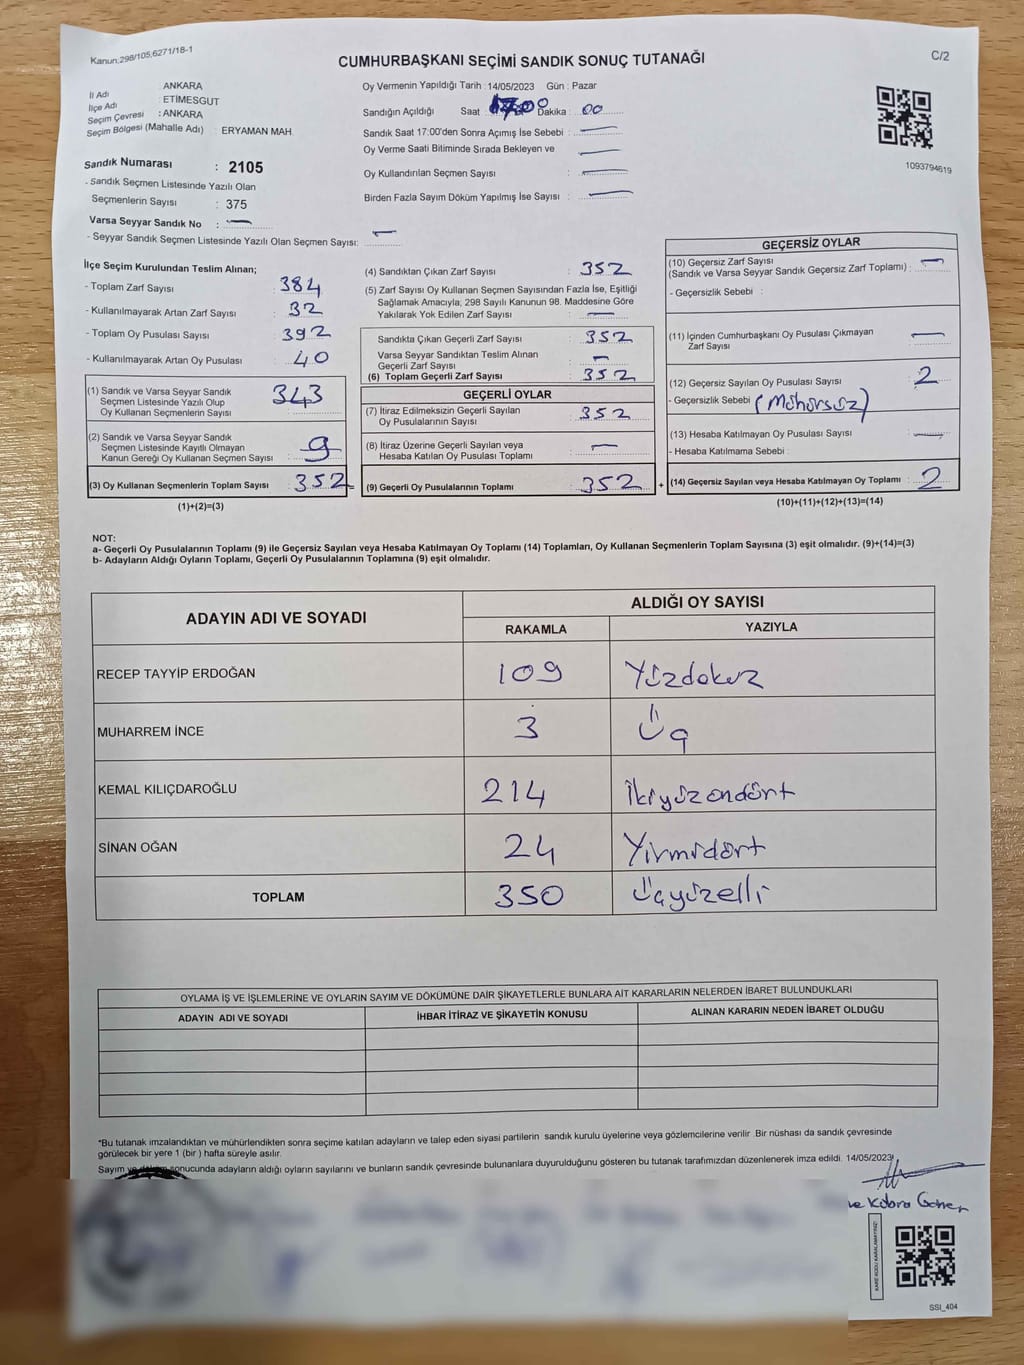 Kanun;298/105;6271/18-1
CUMHURBAŞKANI SEÇİMİ SANDIK SONUÇ TUTANAĞI
C/2
İl Adı : ANKARA
İlçe Adı : ETİMESGUT
Seçim Çevresi : ANKARA
Seçim Bölgesi (Mahalle Adı) : ERYAMAN MAH.
Sandık Numarası : 2105
- Sandık Seçmen Listesinde Yazılı Olan
Seçmenlerin Sayısı : 375
Varsa Seyyar Sandık No : —
- Seyyar Sandık Seçmen Listesinde Yazılı Olan Seçmen Sayısı: —
Oy Vermenin Yapıldığı Tarih : 14/05/2023 Gün : Pazar
Sandığın Açıldığı Saat Dakika : 00
Sandık Saat 17:00'den Sonra Açımış İse Sebebi : —
Oy Verme Saati Bitiminde Sırada Bekleyen ve —
Oy Kullandırılan Seçmen Sayısı : —
Birden Fazla Sayım Döküm Yapılmış İse Sayısı : —
1093794619
İlçe Seçim Kurulundan Teslim Alınan;
- Toplam Zarf Sayısı : 384
- Kullanılmayarak Artan Zarf Sayısı : 32
- Toplam Oy Pusulası Sayısı : 392
- Kullanılmayarak Artan Oy Pusulası : 40
(1) Sandık ve Varsa Seyyar Sandık
Seçmen Listesinde Yazılı Olup
Oy Kullanan Seçmenlerin Sayısı 343
(2) Sandık ve Varsa Seyyar Sandık
Seçmen Listesinde Kayıtlı Olmayan
Kanun Gereği Oy Kullanan Seçmen Sayısı : 9
(3) Oy Kullanan Seçmenlerin Toplam Sayısı : 352
(1)+(2)=(3)
(4) Sandıktan Çıkan Zarf Sayısı : 352
(5) Zarf Sayısı Oy Kullanan Seçmen Sayısından Fazla İse, Eşitliği
Sağlamak Amacıyla; 298 Sayılı Kanunun 98. Maddesine Göre
Yakılarak Yok Edilen Zarf Sayısı : —
Sandıkta Çıkan Geçerli Zarf Sayısı : 352
Varsa Seyyar Sandıktan Teslim Alınan
Geçerli Zarf Sayısı : —
(6) Toplam Geçerli Zarf Sayısı : 352
GEÇERLİ OYLAR
(7) İtiraz Edilmeksizin Geçerli Sayılan
Oy Pusulalarının Sayısı : 352
(8) İtiraz Üzerine Geçerli Sayılan veya
Hesaba Katılan Oy Pusulası Toplamı : —
(9) Geçerli Oy Pusulalarının Toplamı : 352 +
GEÇERSİZ OYLAR
(10) Geçersiz Zarf Sayısı
(Sandık ve Varsa Seyyar Sandık Geçersiz Zarf Toplamı) : —
- Geçersizlik Sebebi :
(11) İçinden Cumhurbaşkanı Oy Pusulası Çıkmayan
Zarf Sayısı : —
(12) Geçersiz Sayılan Oy Pusulası Sayısı : 2
- Geçersizlik Sebebi (Mühürsüz)
(13) Hesaba Katılmayan Oy Pusulası Sayısı : —
- Hesaba Katılmama Sebebi :
(14) Geçersiz Sayılan veya Hesaba Katılmayan Oy Toplamı : 2
(10)+(11)+(12)+(13)=(14)
NOT:
a- Geçerli Oy Pusulalarının Toplamı (9) ile Geçersiz Sayılan veya Hesaba Katılmayan Oy Toplamı (14) Toplamları, Oy Kullanan Seçmenlerin Toplam Sayısına (3) eşit olmalıdır. (9)+(14)=(3)
b- Adayların Aldığı Oyların Toplamı, Geçerli Oy Pusulalarının Toplamına (9) eşit olmalıdır.
ADAYIN ADI VE SOYADI ALDIĞI OY SAYISI
RAKAMLA YAZIYLA
RECEP TAYYİP ERDOĞAN 109 Yüzdokuz
MUHARREM İNCE 3 Üç
KEMAL KILIÇDAROĞLU 214 İkiyüzondört
SİNAN OĞAN 24 Yirmidört
TOPLAM 350 Üçyüzelli
OYLAMA İŞ VE İŞLEMLERİNE VE OYLARIN SAYIM VE DÖKÜMÜNE DAİR ŞİKAYETLERLE BUNLARA AİT KARARLARIN NELERDEN İBARET BULUNDUKLARI
ADAYIN ADI VE SOYADI İHBAR İTİRAZ VE ŞİKAYETİN KONUSU ALINAN KARARIN NEDEN İBARET OLDUĞU
*Bu tutanak imzalandıktan ve mühürlendikten sonra seçime katılan adayların ve talep eden siyasi partilerin sandık kurulu üyelerine veya gözlemcilerine verilir .Bir nüshası da sandık çevresinde
görülecek bir yere 1 (bir ) hafta süreyle asılır.
Sayım ve döküm sonucunda adayların aldığı oyların sayılarını ve bunların sandık çevresinde bulunanlara duyurulduğunu gösteren bu tutanak tarafımızdan düzenlenerek imza edildi. 14/05/2023
SSI_404